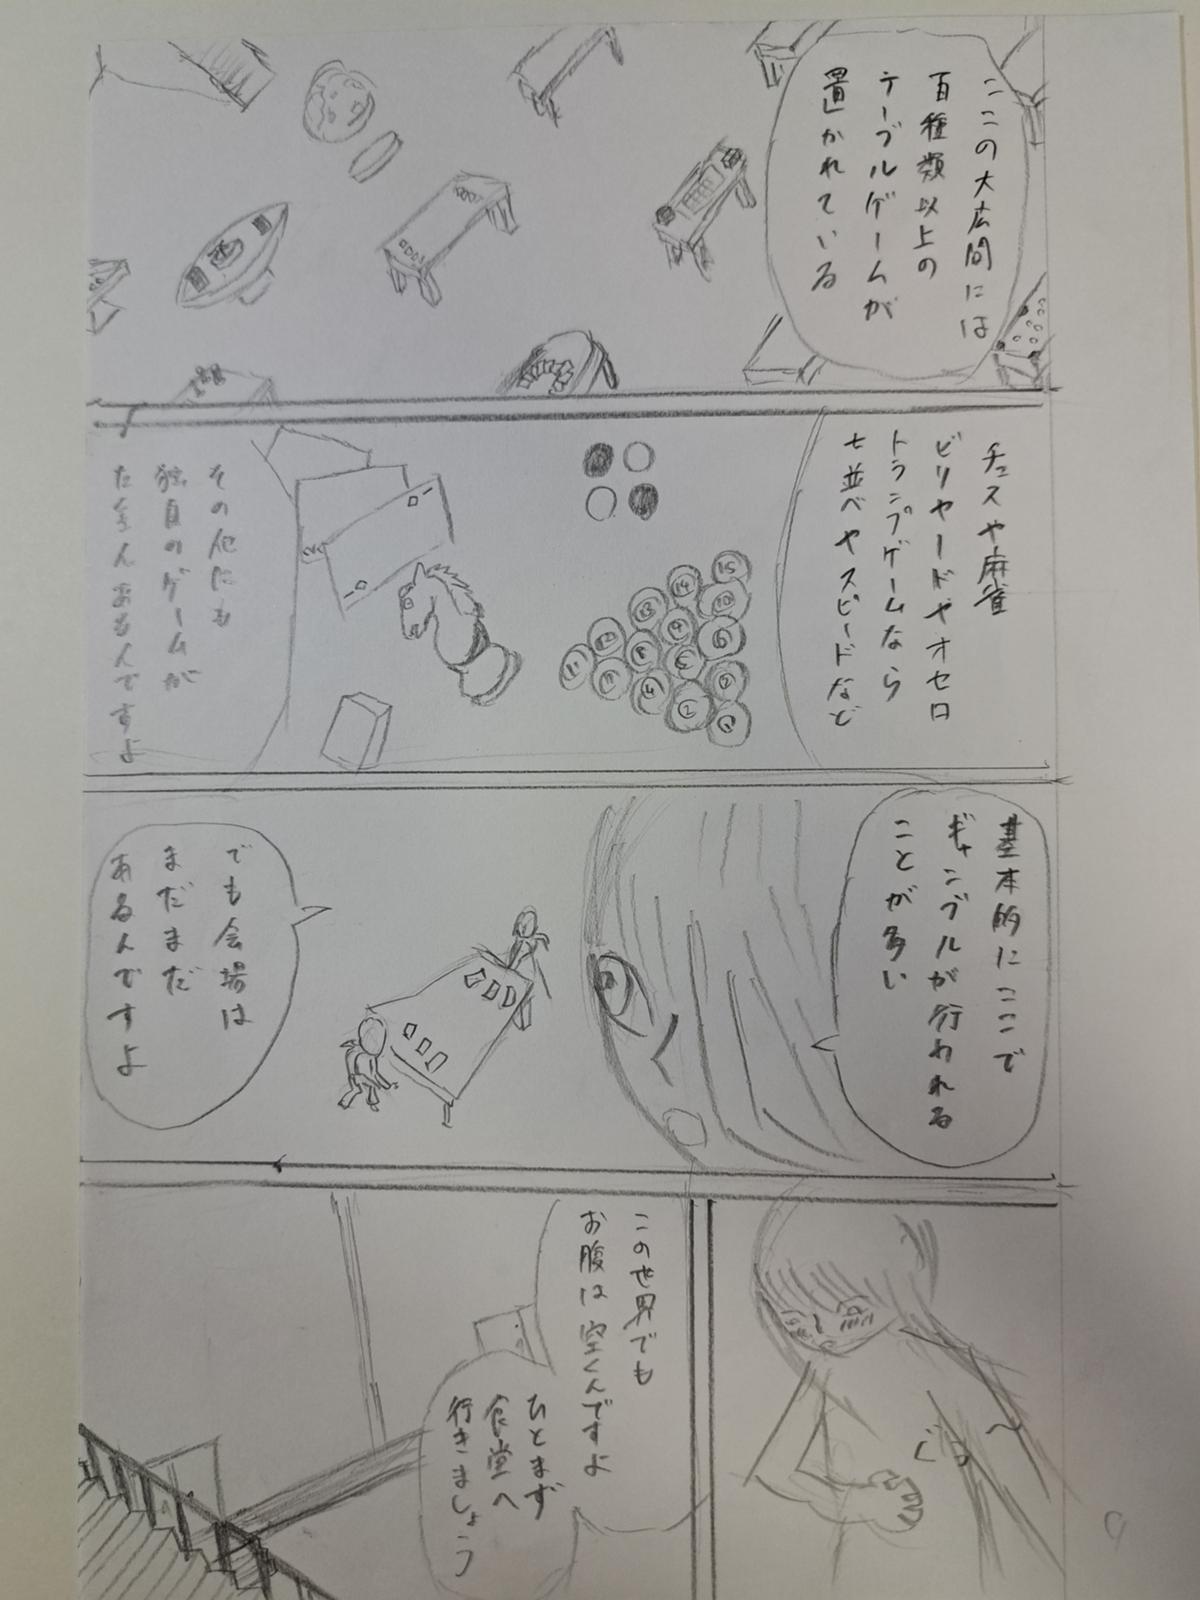 ここの大広間には
百種類以上の
テーブルゲームが
置かれている
チェスや麻雀
ビリヤードやオセロ
トランプゲームなら
七並べやスピードなど
その他にも
独自のゲームが
たくさんあるんですよ
基本的にここで
ギャンブルが行われる
ことが多い
でも会場は
まだまだ
あるんですよ
ぐう〜
この世界でも
お腹は空くんですよ
ひとまず
食堂へ
行きましょう
9